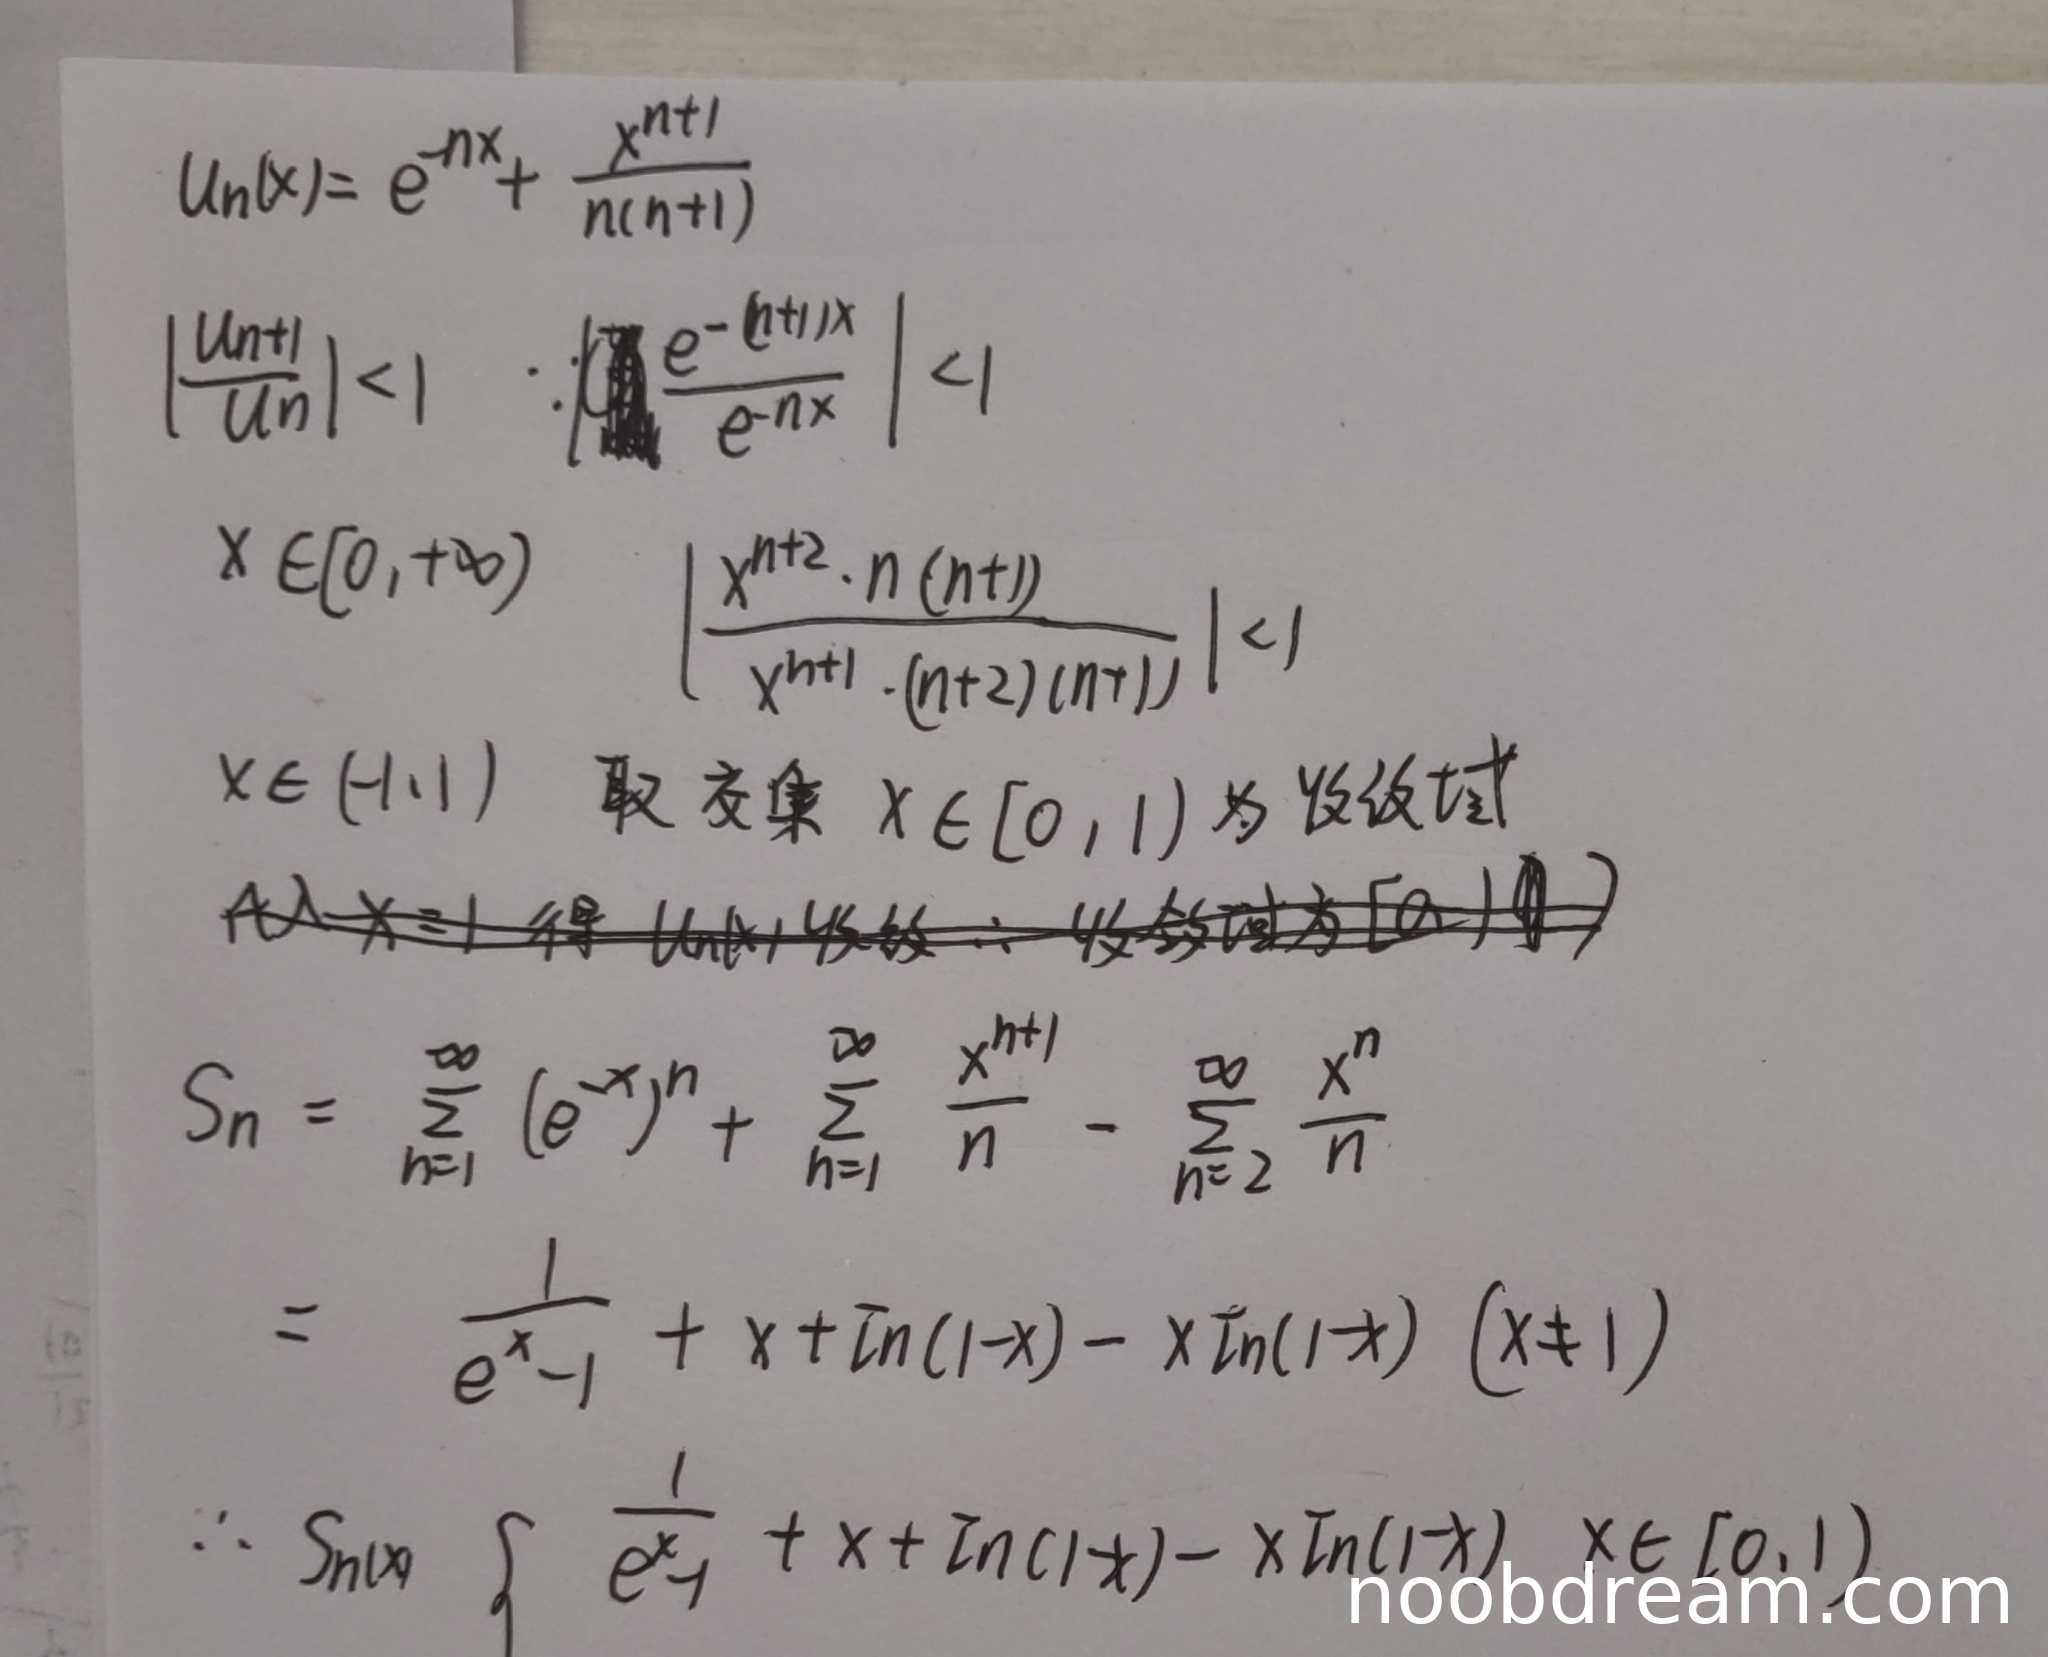 Un(x)= e^{-nx} + \frac{x^{n+1}}{n(n+1)}
|\frac{Un+1}{Un}| <1 ∵ |\frac{e^{-(n+1)x}}{e^{-nx}}| <1
x∈[0,+∞) |\frac{x^{n+2}·n(n+1)}{x^{n+1}·(n+2)(n+1)}| <1
x∈(-1,1) 取交集 x∈[0,1)为收敛域
Sn = \sum_{n=1}^{∞} (e^{-x})^n + \sum_{n=1}^{∞} \frac{x^{n+1}}{n} - \sum_{n=2}^{∞} \frac{x^n}{n}
= \frac{1}{e^x-1} + x+In(1-x) - xIn(1-x) (x≠1)
∴ Sn(x) { \frac{1}{e^x-1} + x + In(1-x) - xIn(1-x) x∈[0,1)
noobdream.com